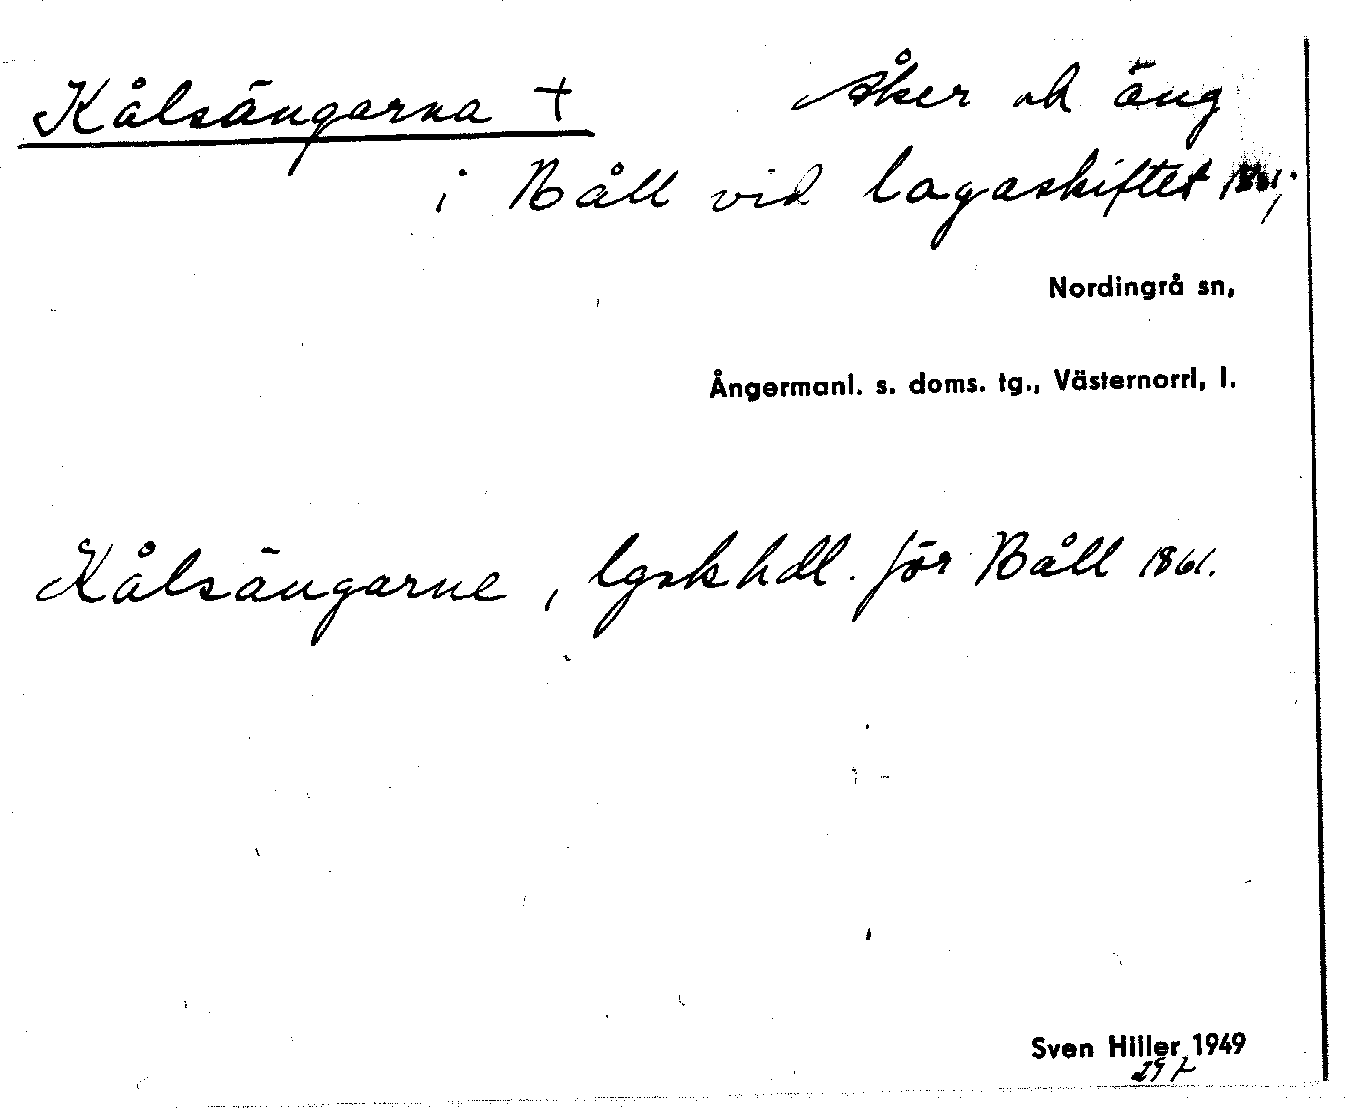 Kålsängarna + Åker ok äng
i Båll vid lagaskiftet 1861;
Nordingrå sn,
Ångermanl. s. doms. tg., Västernorrl, l.
Kålsängarne, lgsk hdl. för Båll 1861.
Sven Hiller 1949